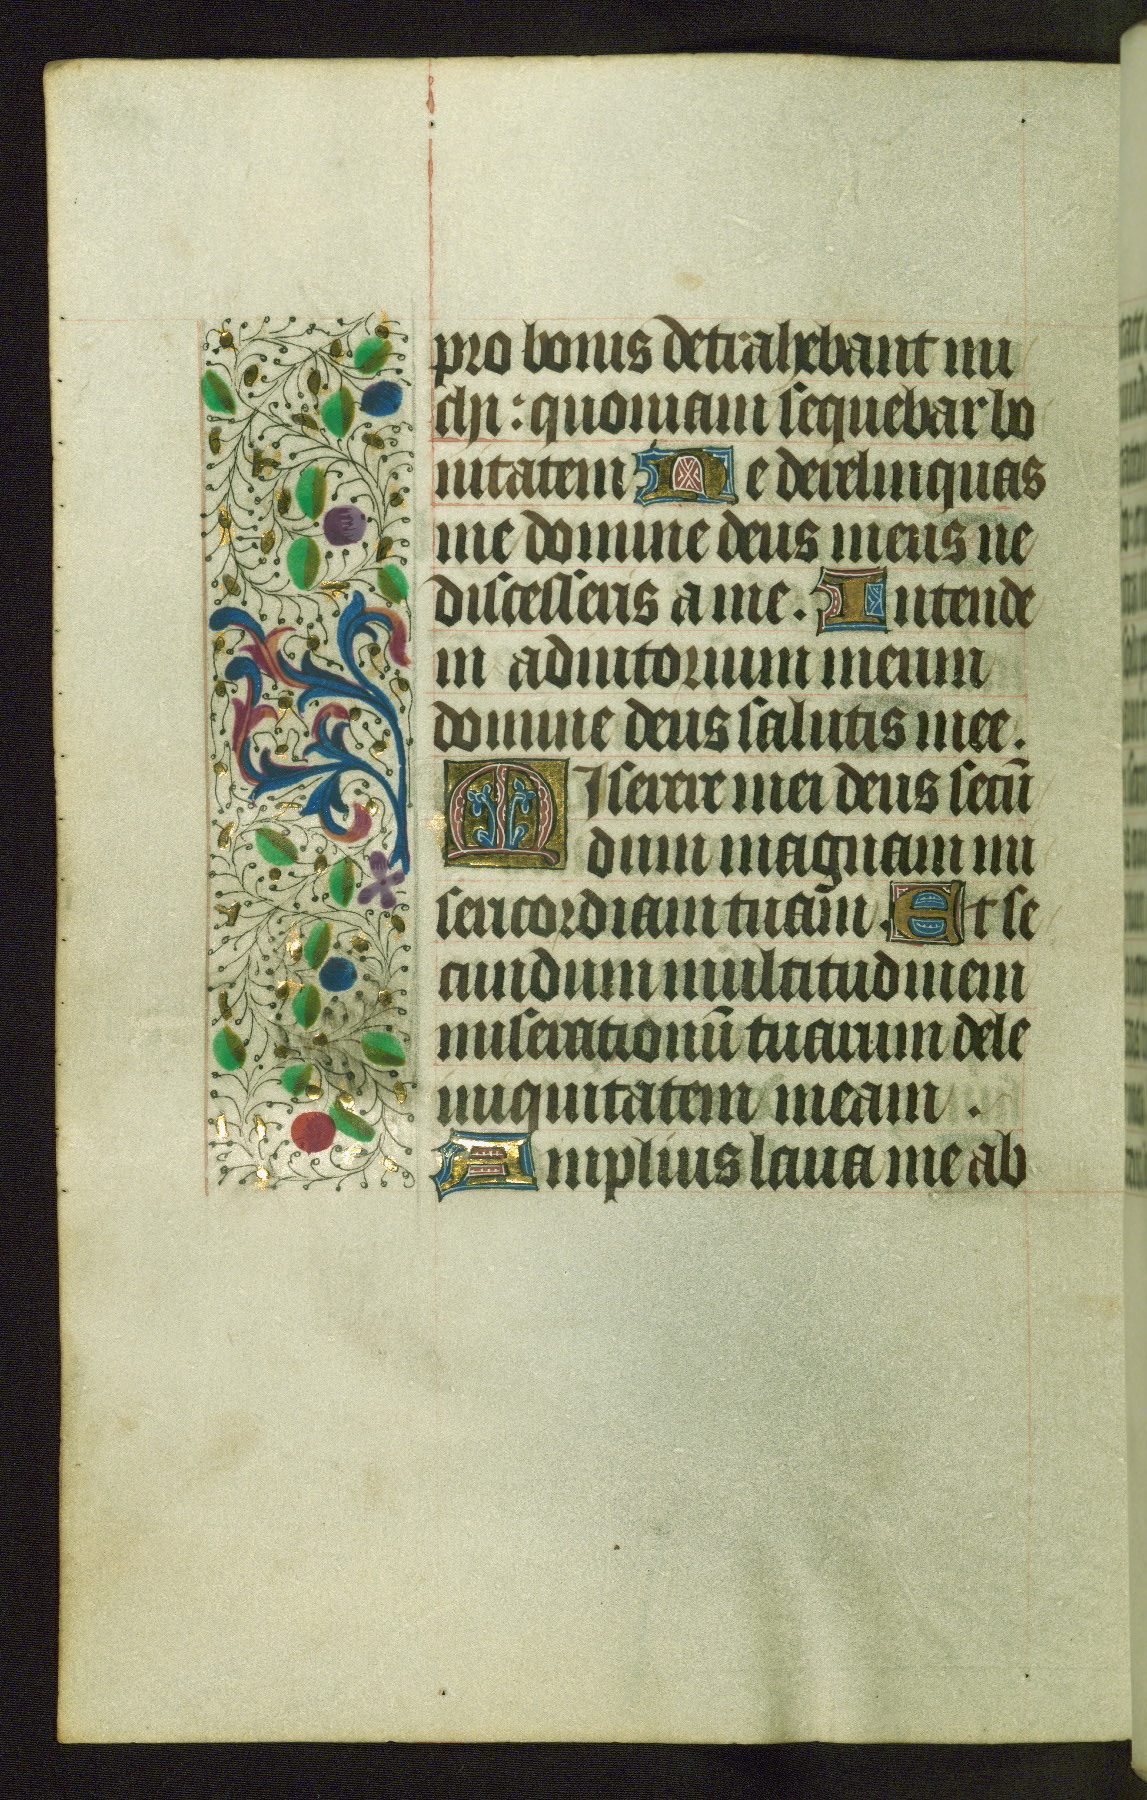 pro bonis detrahebant mi
chi : quoniam sequebar bo
nitatem Ne derelinquas
me domine deus meus ne
discesseris a me . Intende
in adiutorium meum
domine deus salutis mee .
Miserere mei deus secū
dum magnam mi
sericordiam tuam̄ . Et se
cundum multitudinem
miserationū tuarum dele
iniquitatem meam .
Amplius laua me ab